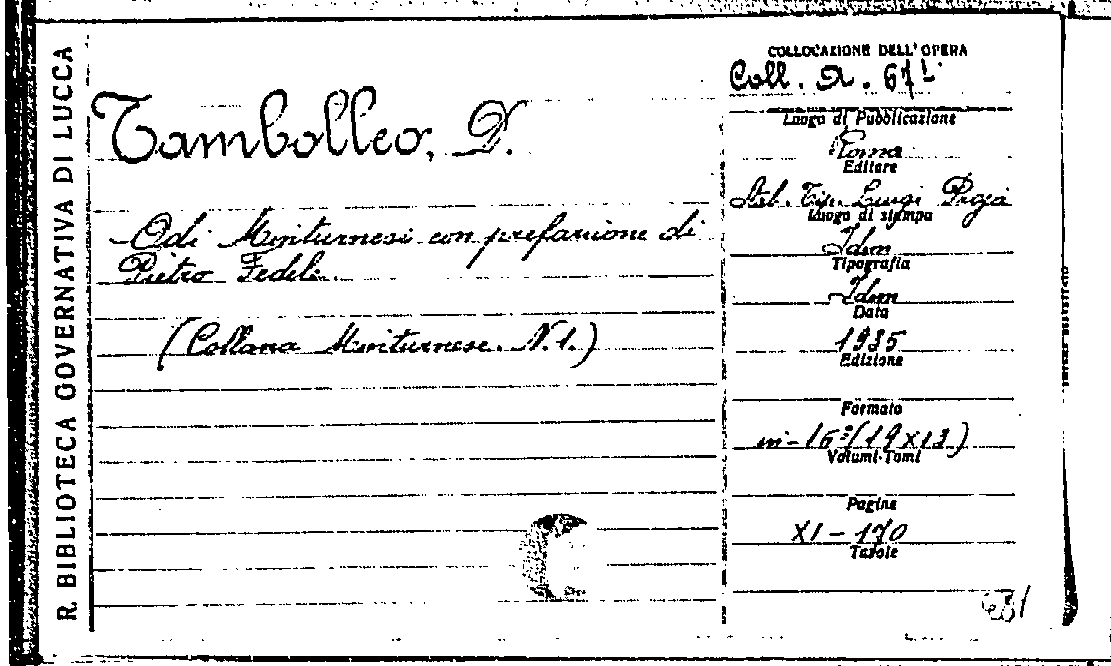 R. BIBLIOTECA GOVERNATIVA DI LUCCA
Tambolleo, D.
Odi Minturnesi con prefazione di
Pietro Fedele
(Collana Minturnese. N. 1.)
COLLOCAZIONE DELL'OPERA
Coll. A. 67
Luogo di Pubblicazione
Roma
Editore
Stab. Tip. Luigi Proja
Luogo di stampa
Idem
Tipografia
Idem
Data
1935
Edizione
Formato
in-16º (19x13)
Volumi-Tomi
Pagine
XI-170
Tavole